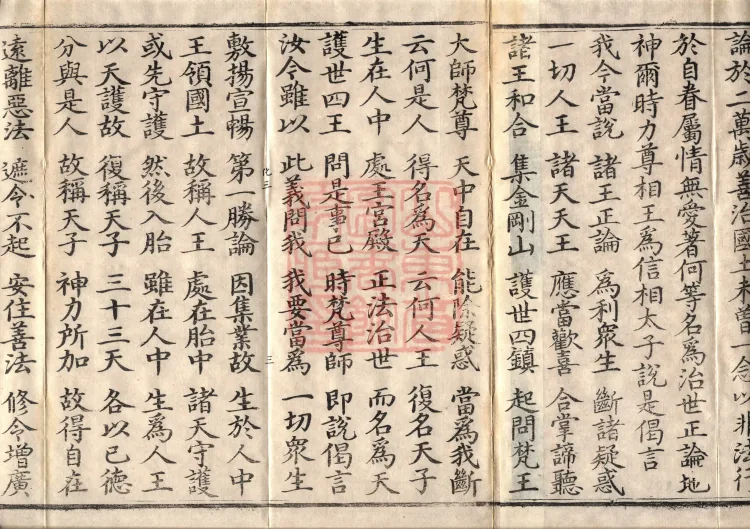 論於二萬歲善治國土未曾一念以非法行
於自眷屬情無愛著何等名為治世正論地
神爾時力尊相王為信相太子說是偈言
我今當說 諸王正論 為利眾生 斷諸疑惑
一切人王 諸天天王 應當歡喜 合掌諦聽
諸王和合 集金剛山 護世四鎮 起問梵王
大師梵尊 天中自在 能除疑惑 當為我斷
云何是人 得名為天 云何人王 復名天子
生在人中 處王宮殿 正法治世 而名為天
護世四王 問是事已 時梵尊師 即說偈言
汝今雖以 此義問我 我要當為 一切眾生
化三 三
敷揚宣暢 第一勝論 因集業故 生於人中
王領國土 故稱人王 處在胎中 諸天守護
或先守護 然後入胎 雖在人中 生為人王
以天護故 復稱天子 三十三天 各以己德
分與是人 故稱天子 神力所加 故得自在
遠離惡法 遮令不起 安住善法 修令增廣